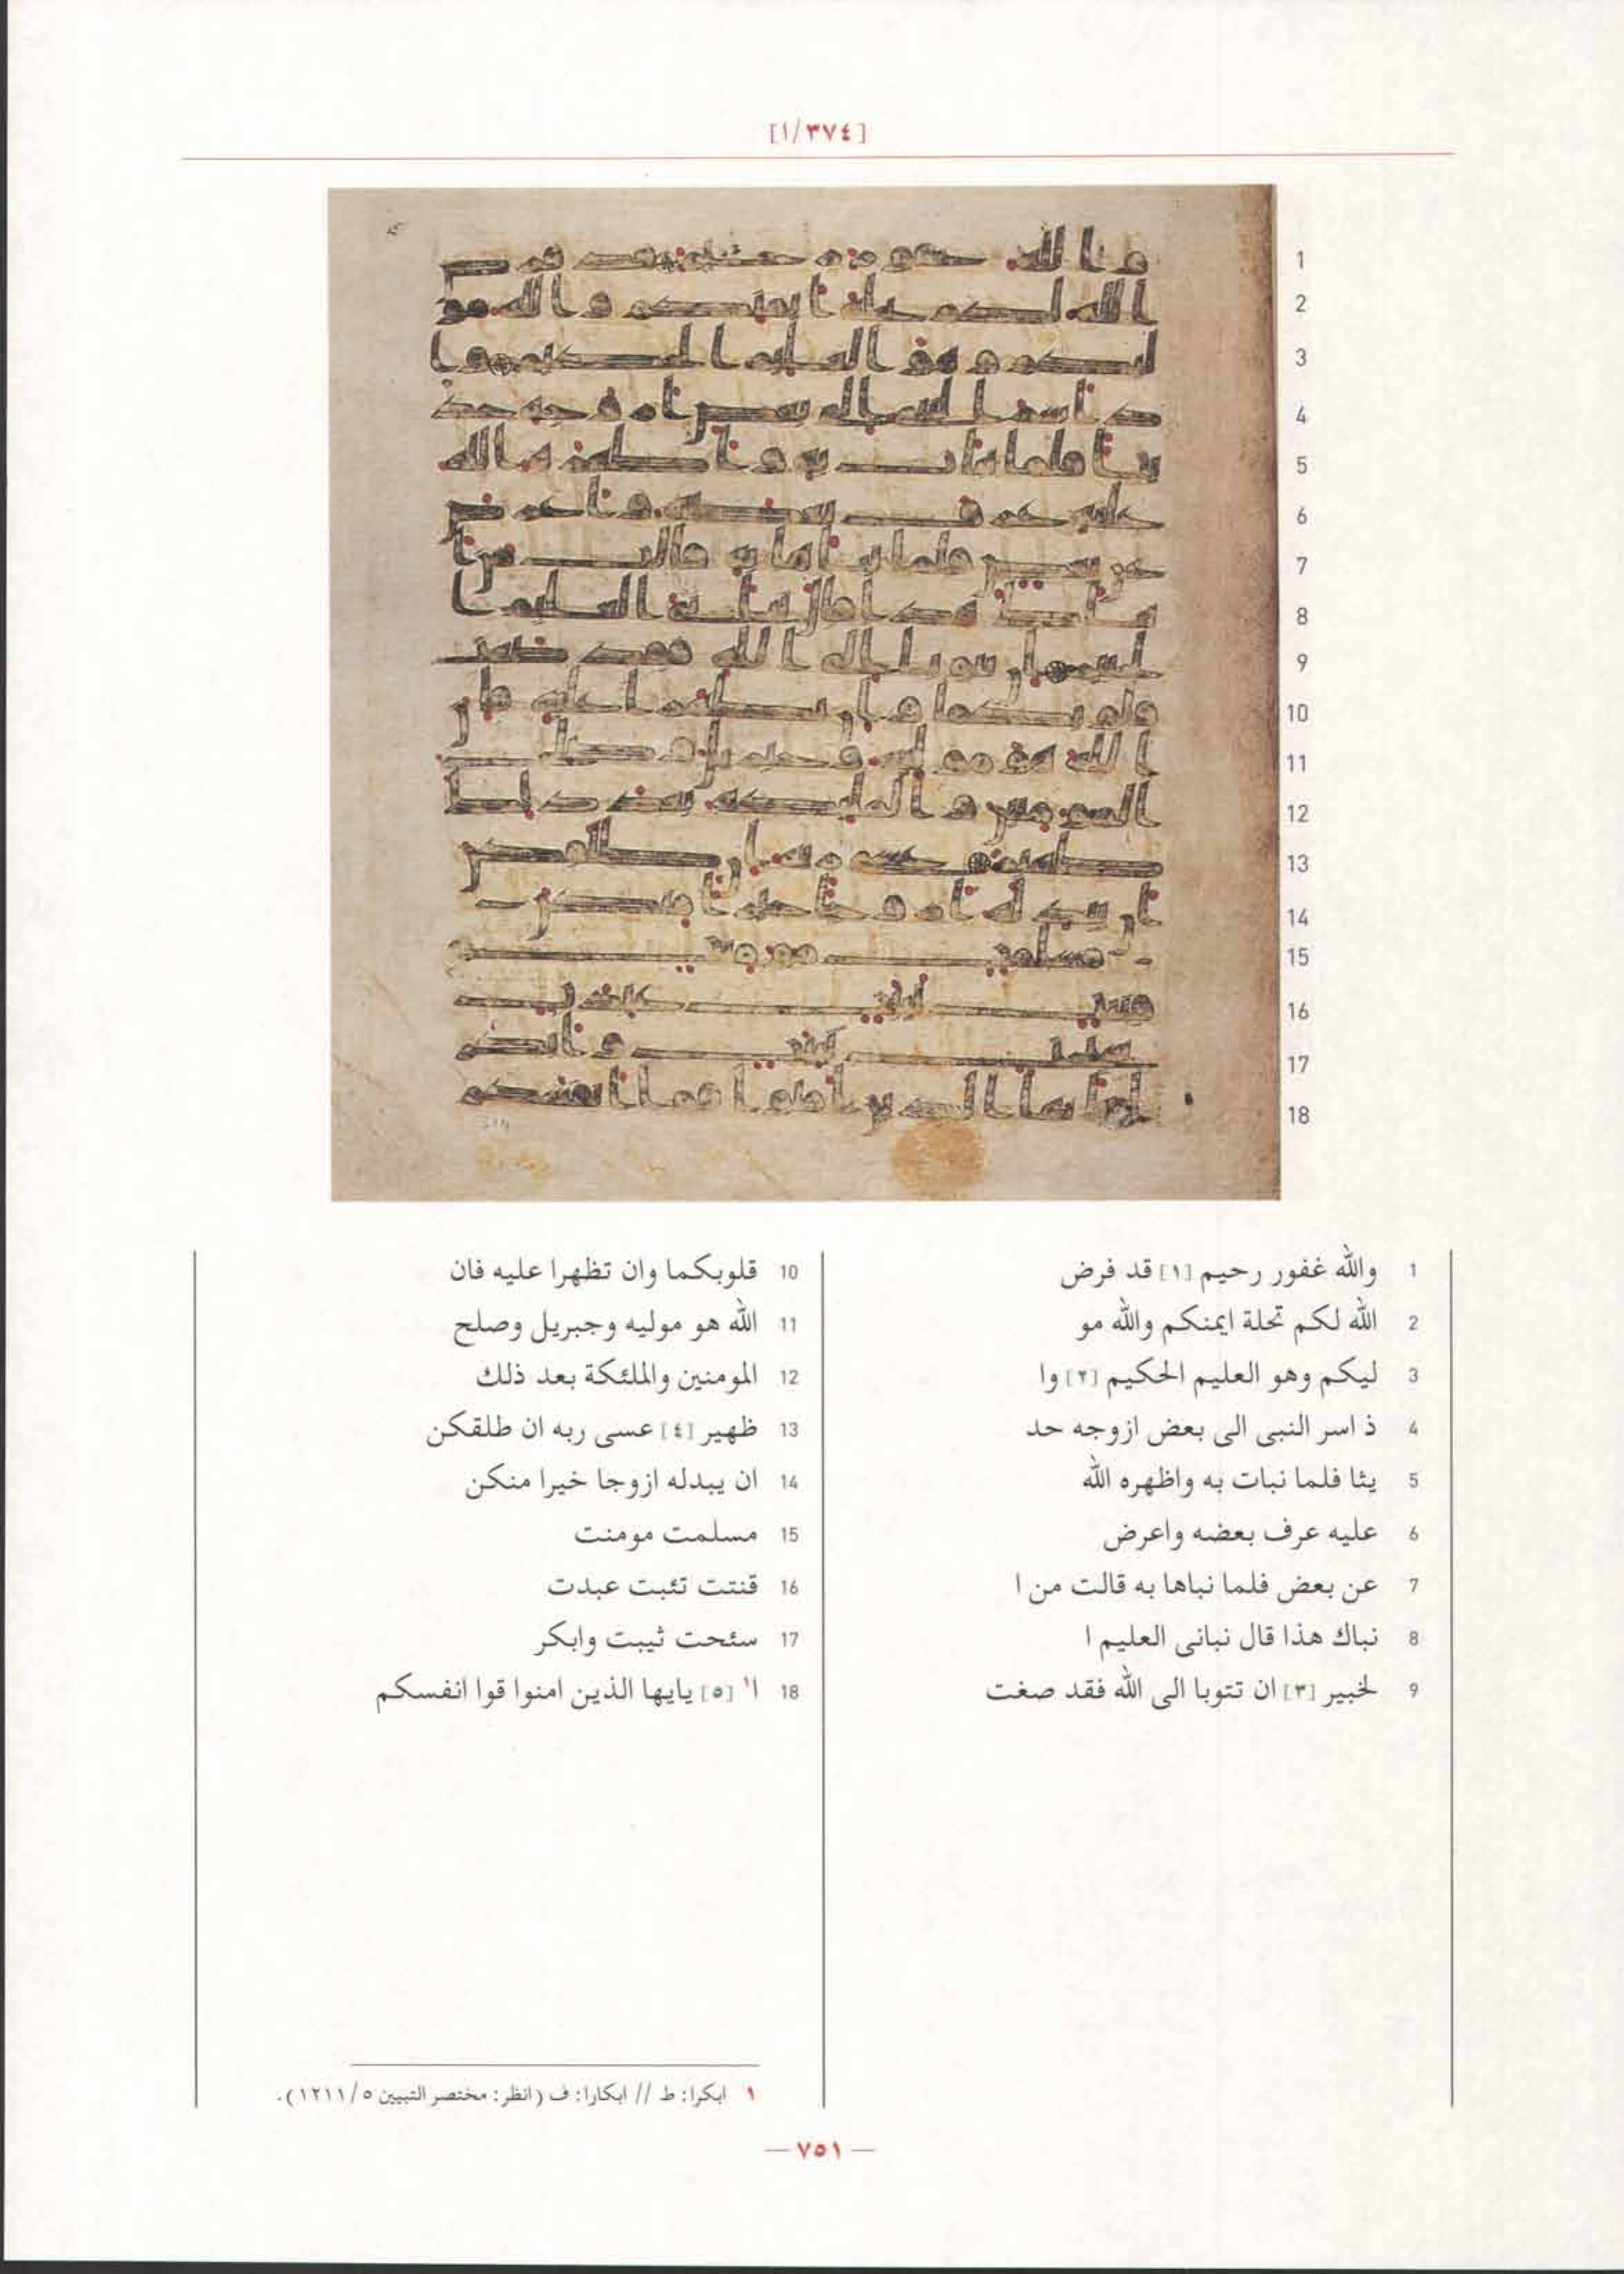 [٣٧٤/١]
1
2
3
4
5
6
7
8
9
10
11
12
13
14
15
16
17
18
1 والله غفور رحيم [١] قد فرض
2 الله لكم تحلة ايمنكم والله مو
3 ليكم وهو العليم الحكيم [٢] وا
4 ذ اسر النبى الى بعض ازوجه حد
5 يثا فلما نبات به واظهره الله
6 عليه عرف بعضه واعرض
7 عن بعض فلما نباها به قالت من ا
8 نباك هذا قال نبانى العليم ا
9 لخبير [٣] ان تتوبا الى الله فقد صغت
10 قلوبكما وان تظهرا عليه فان
11 الله هو موليه وجبريل وصلح
12 المومنين والملئكة بعد ذلك
13 ظهير [٤] عسى ربه ان طلقكن
14 ان يبدله ازوجا خيرا منكن
15 مسلمت مومنت
16 قنتت تئبت عبدت
17 سئحت ثيبت وابكر
18 ا١ [٥] يايها الذين امنوا قوا انفسكم
١ ابكرا: ط // ابكارا: ف (انظر: مختصر التبيين ٥/١٢١١).
— ٧٥١ —